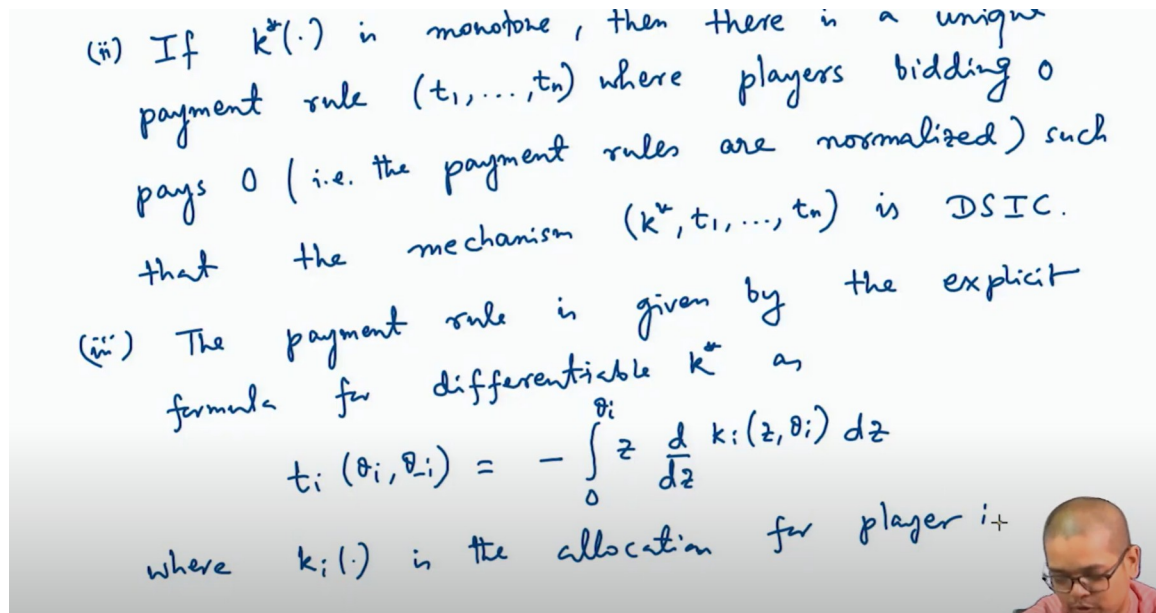 (ii) If k*(·) is monotone, then there is a unique
payment rule (t₁, ..., tₙ) where players bidding 0
pays 0 (i.e. the payment rules are normalized) such
that the mechanism (k*, t₁, ..., tₙ) is DSIC.
(iii) The payment rule is given by the explicit
formula for differentiable k* as
tᵢ (θᵢ, θ₋ᵢ) = - ∫₀^θᵢ z d/dz kᵢ(z, θᵢ) dz
where kᵢ(·) is the allocation for player i